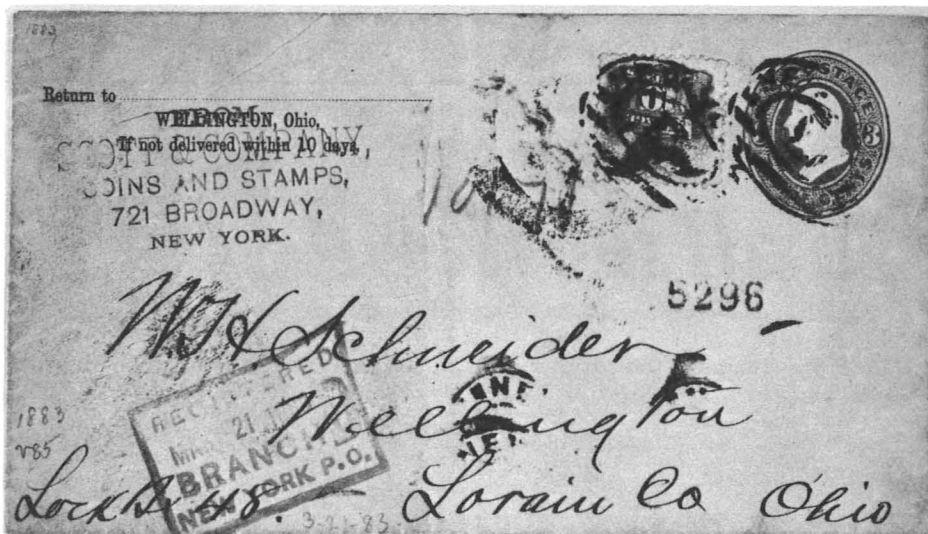 1883
Return to
WELLINGTON, Ohio,
If not delivered within 10 days,
FROM
SCOTT & COMPANY
COINS AND STAMPS,
721 BROADWAY,
NEW YORK.
POSTAGE
3
10
5296
W H Schneider
Wellington
Lorain Co Ohio
Lock Bx 48.
REGISTERED
21
BRANCH
NEW YORK P.O.
1883
v85
3-21-83